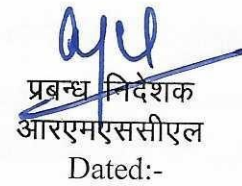 प्रबन्ध निदेशक
आरएमएससीएल
Dated:-